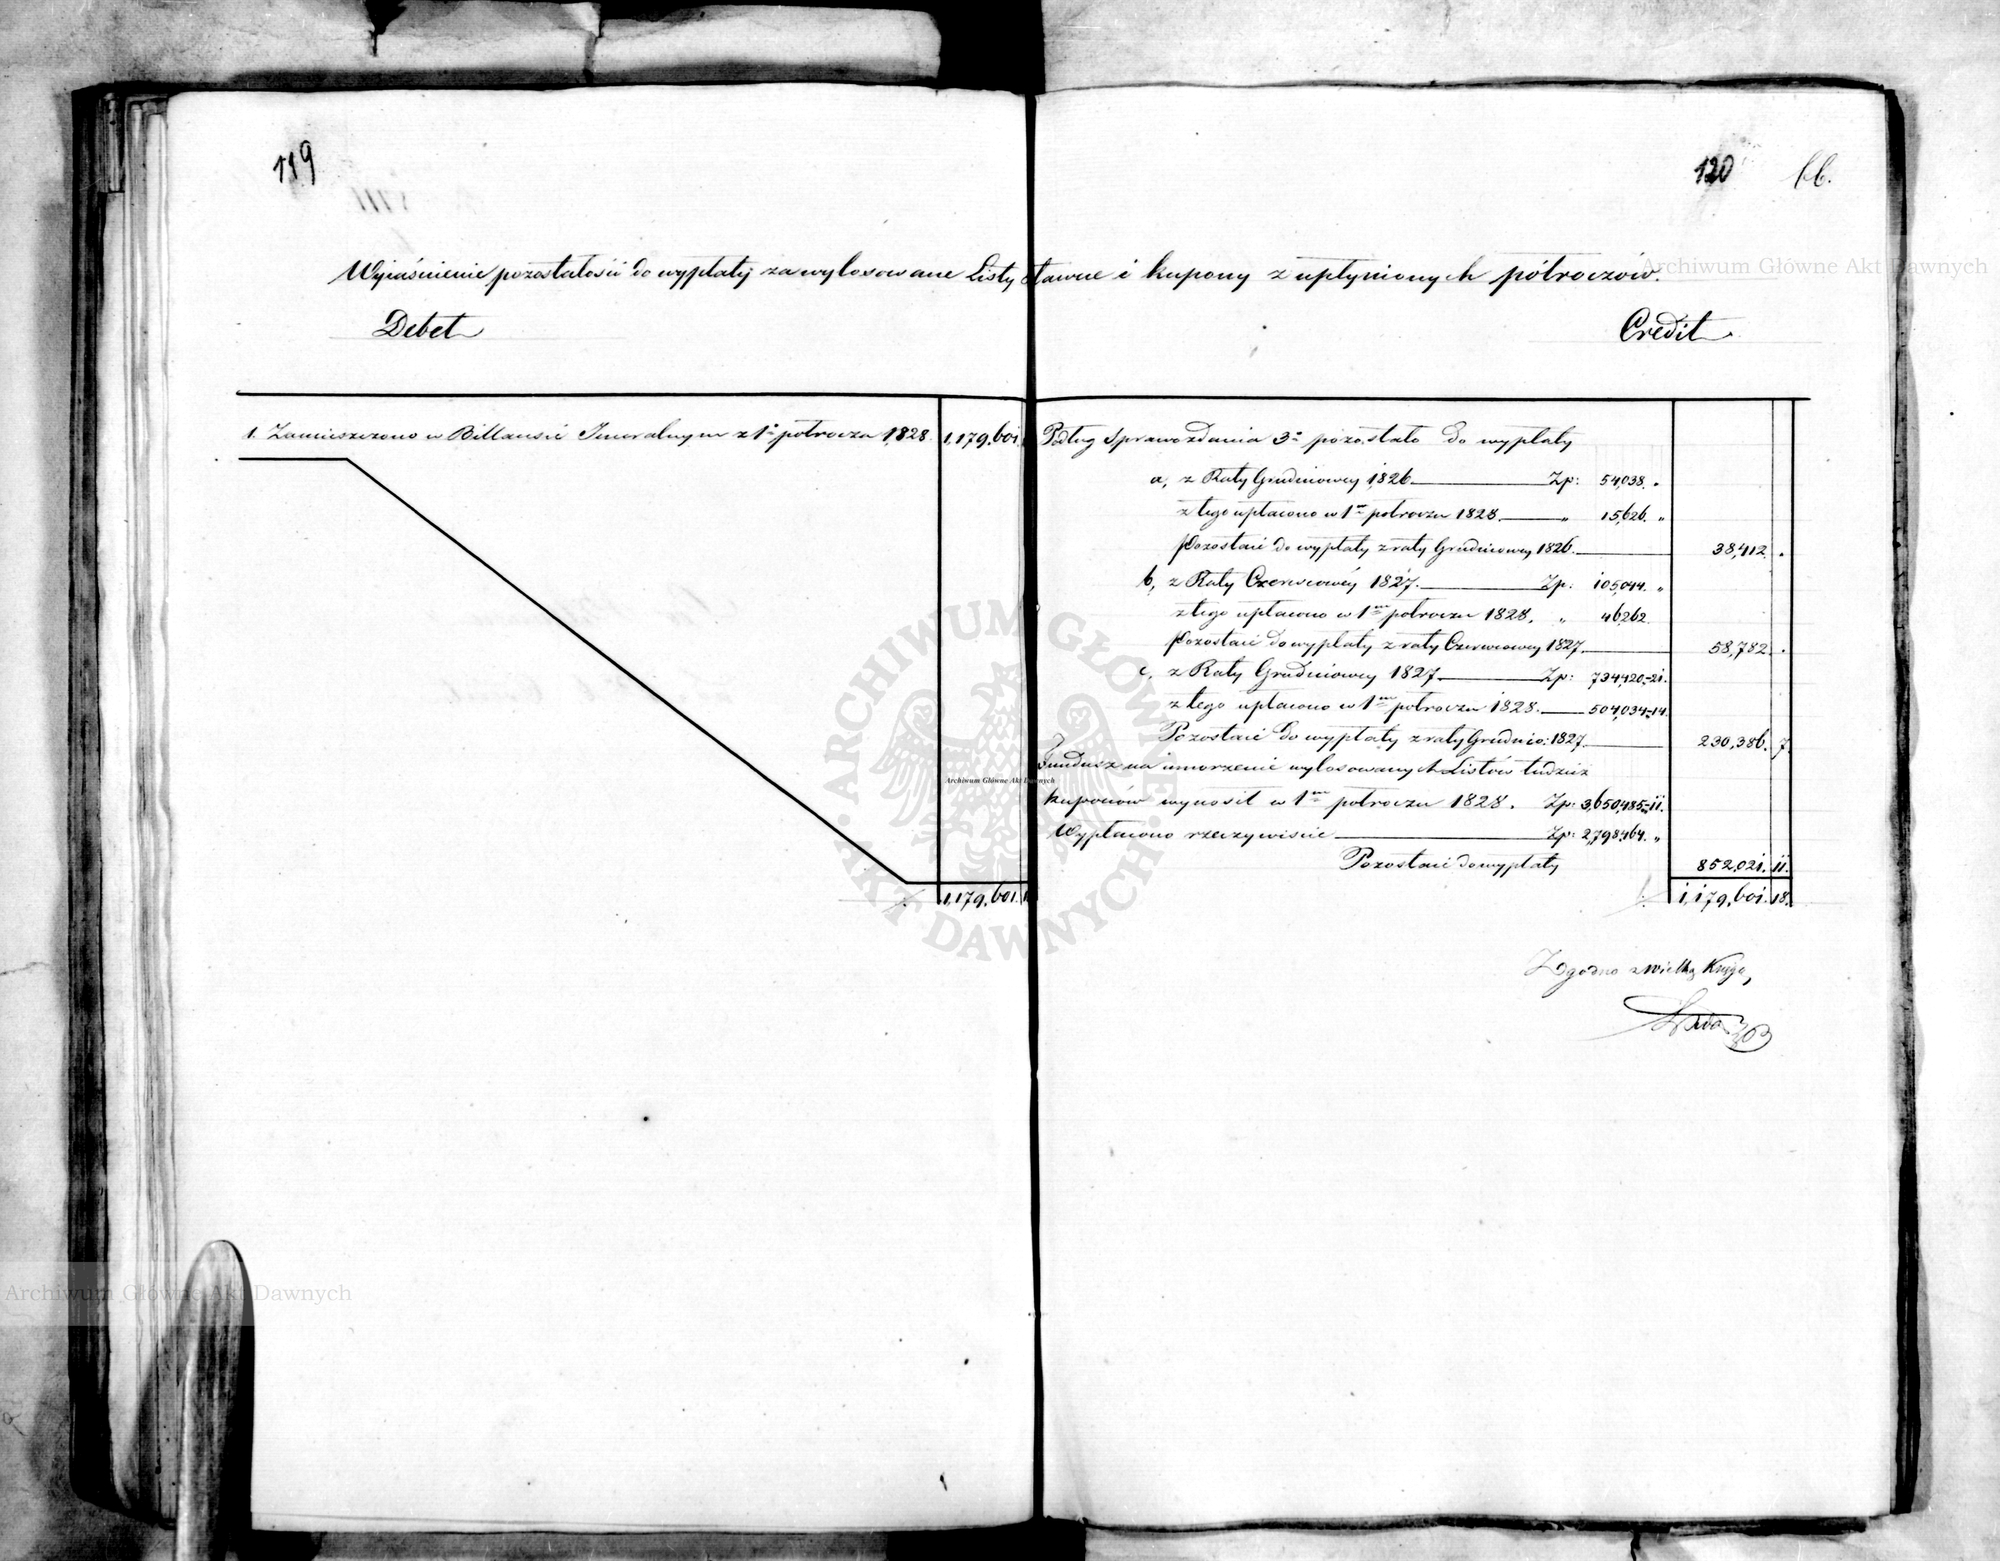 119
120 66.
Wyjaśnienie pozostałości do wypłaty za wylosowane Listy stawne i kupony z upłynionych półroczów.
Debet
Credit
1. Zamieszczono w Billansie Jeneralnym z 1o półrocza 1828. 1,179,601.
1,179,601.
Podług Sprawozdania 3o pozostało do wypłaty
a, z Raty Grudniowey 1826 Zp: 54,038. „
z tego upłacono w 1m półroczu 1828 „ 15,626. „
Pozostaie do wypłaty z raty Grudniowey 1826. 38,412. „
b, z Raty Czerwcowéy 1827. Zp: 105,044. „
z tego upłacono w 1m półroczu 1828. „ 46,262.
Pozostaie do wypłaty z raty Czerwcowey 1827. 58,782. „
c, z Raty Grudniowey 1827 Zp: 734,420.-21.
z tego upłacono w 1m półroczu 1828. 504,034.-14.
Pozostaie do wypłaty z raty Grudnio: 1827. 230,386. 7.
Fundusz na umorzenie wylosowanych Listów tudzież
kuponów wynosił w 1m półroczu 1828. Zp: 3,650,485.-11.
Wypłacono rzeczywiście Zp: 2,798,464. „
Pozostaie do wypłaty 852,021. 11.
1,179,601. 18.
Zgodno z Wielką Księgą,
Archiwum Główne Akt Dawnych
Archiwum Główne Akt Dawnych
Archiwum Główne Akt Dawnych
ARCHIWUM GŁÓWNE AKT DAWNYCH